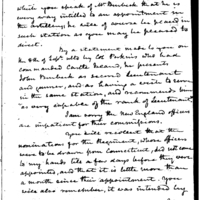 While you speak of Mr Burbeck that he is
very very intitled to an appointment in
the artillery, he will of course be placed in
such station as you may be pleased to
direct.
By a statement made to you on
the 8th of Septr ulto by Col. Perkins who had
commanded Castle Island, he presents
John Burbeck as second lieutenant
and gunner, and as having a wish to serve
in the same station, and recommends him
as "very capable of the rank of lieutenant"
I am sorry the New England officers
are impatient for their commissions.
You will recollect that the
nominations for the Regiment, whose officers
were to be drawn from Connecticut, did not come
to my hands till a few days before they were
appointed, and that it is little more than
a month since their appointment. You
will also remember, it was intended by